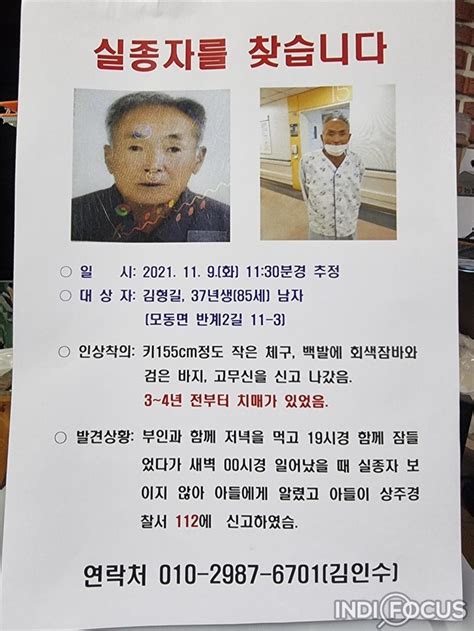 실종자를 찾습니다
○ 일 시: 2021. 11. 9.(화) 11:30분경 추정
○ 대 상 자: 김형길, 37년생(85세) 남자
(모동면 반계2길 11-3)
○ 인상착의: 키155cm정도 작은 체구, 백발에 회색잠바와
검은 바지, 고무신을 신고 나갔음.
3~4년 전부터 치매가 있었음.
○ 발견상황: 부인과 함께 저녁을 먹고 19시경 함께 잠들
었다가 새벽 00시경 일어났을 때 실종자 보
이지 않아 아들에게 알렸고 아들이 상주경
찰서 112에 신고하였슴.
연락처 010-2987-6701(김인수)
INDIFOCUS